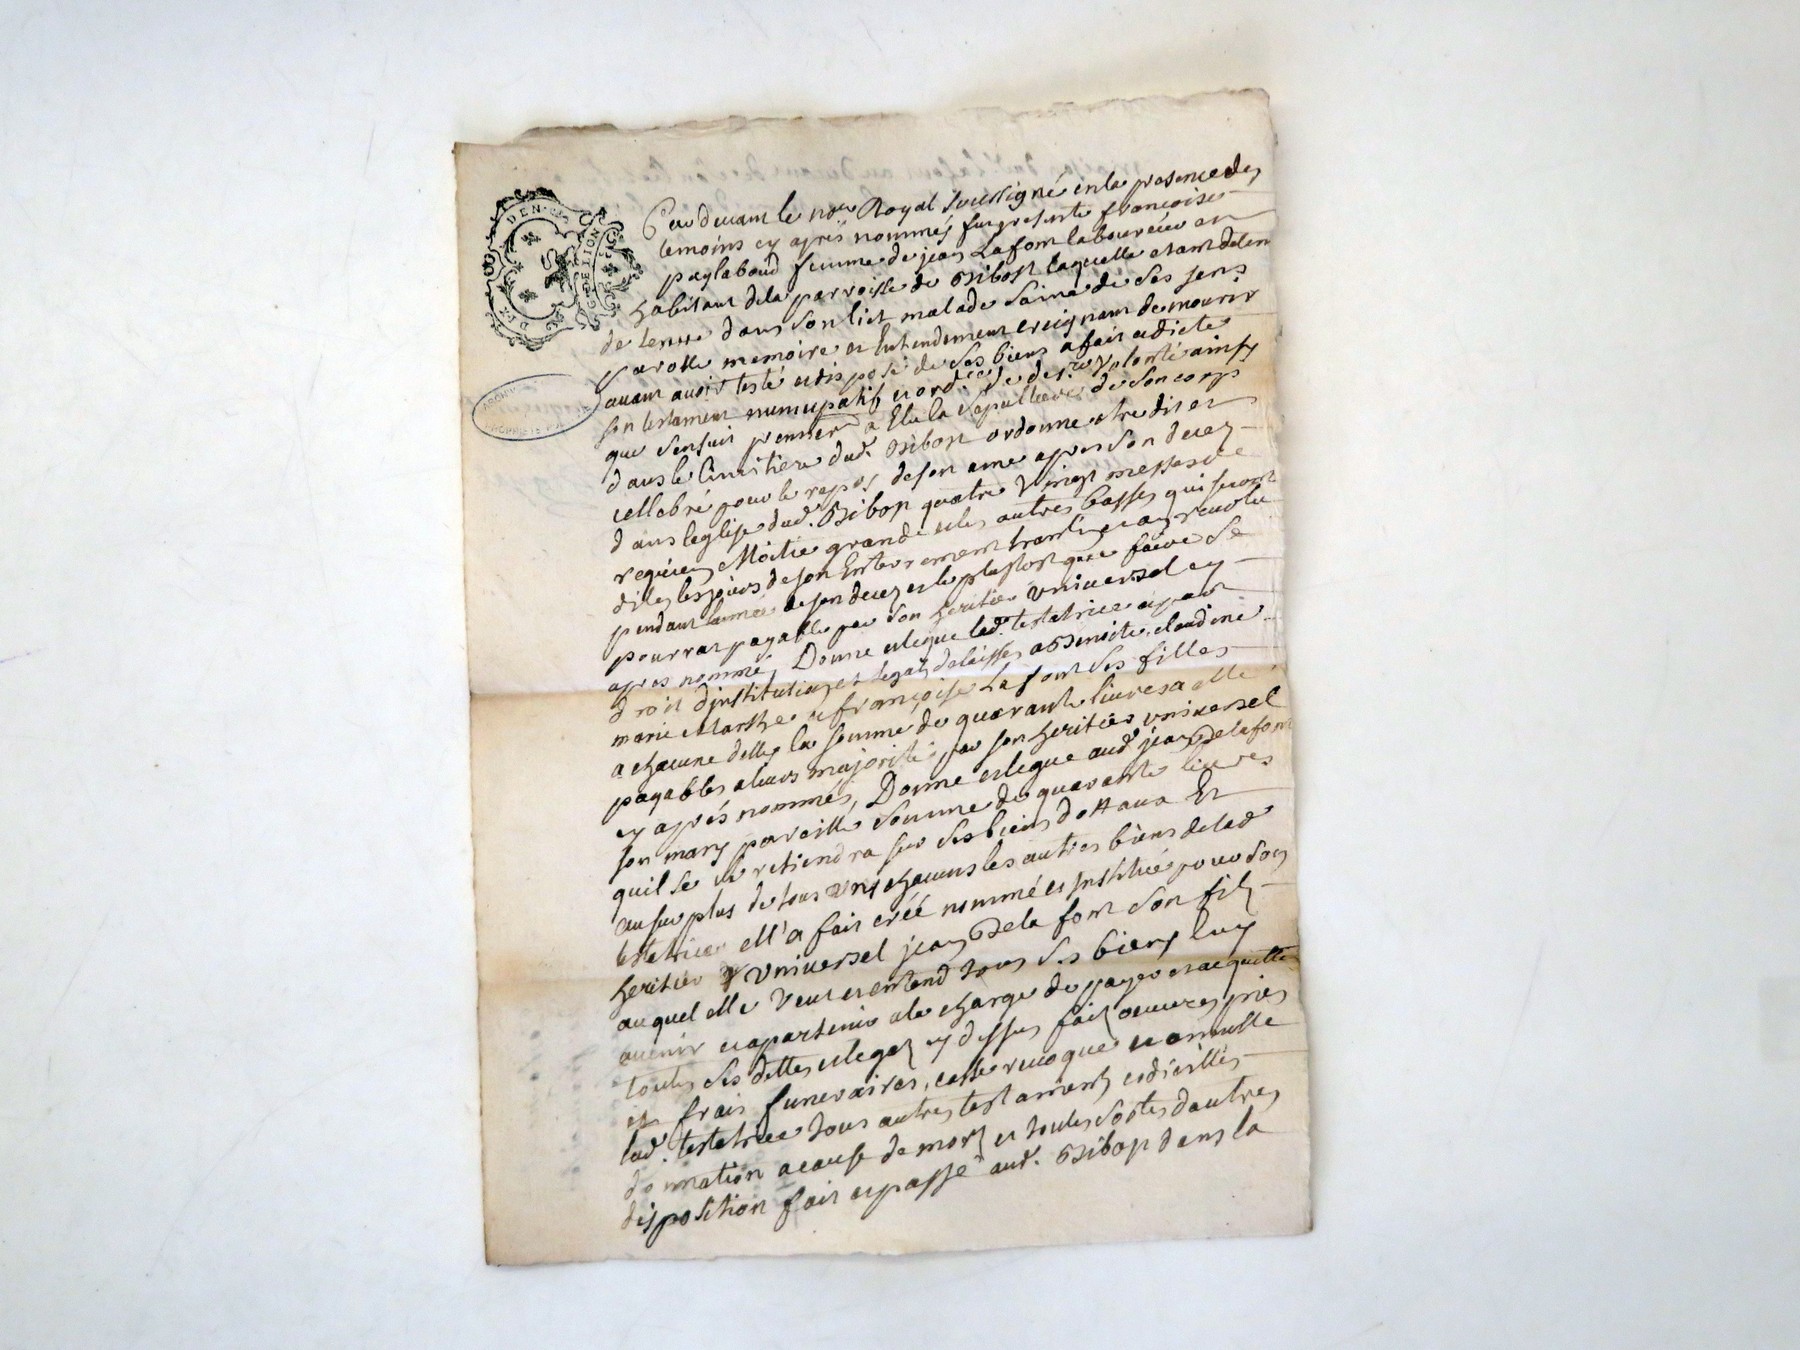 DEN
GE LION
Pardevant le nore Royal soussigné en la presence des
temoins cy aprés nommés fut presente françoise
puylaboud femme de jean Lafont laboureur et
habitant dela parroisse de Bibost laquelle etant detenue
de dans son lict malade saine de ses sens
parolle memoire et Entendement creignant de mourir
avant avoir testé et disposé de ses biens a fait et dicté
son testament nuncupatif et ordce de derre volonté ainsy
que sensuit premierement a Elu la sepulture de son corps
dans le Cimitiere dud. Bibost ordonne etre dit et
cellebré pour le repos de son ame apres son decez
dans leglise dud. Bibost quatre Vingt messes de
requiem Moitié grandes et les autres basses qui seront
dites les jours de son Enterrement quarantin et an revolu
pendant lannée de son decez et le plustost que faire se
pourrat payable par son heritier universel cy
apres nommé, Donne et legue lad. testatrice a par
droit dinstitution et legat delaisse a Benoite, claudine
marie Marthe et françoise Lafont ses filles
a chacune delles la somme de quarante livres a elle
payables a leurs majorité par son heritier universel
cy aprés nommés, Donne et legue aud. jean Delafont
son mary pareille somme de quarante livres
quil se retiendra sur ses biens dottaux Et
au surplus de tous uns chacuns les autres biens de lad
testatrice ell'a fait créé nommé et institué pour son
heritier universel jean Delafont son filz
auquel elle veut et entend tous ses biens luy
avenir et apartenir ala charge de payer et acquitter
toutes ses dettes et legaz cy dessus faiz oeuvres pies
et frais funeraires, casse revoque et annulle
lad. testatrice tous autres testaments codicilles
donnation a cause de mort et toutes sortes dautres
disposition fait et passé aud. Bibost dans la